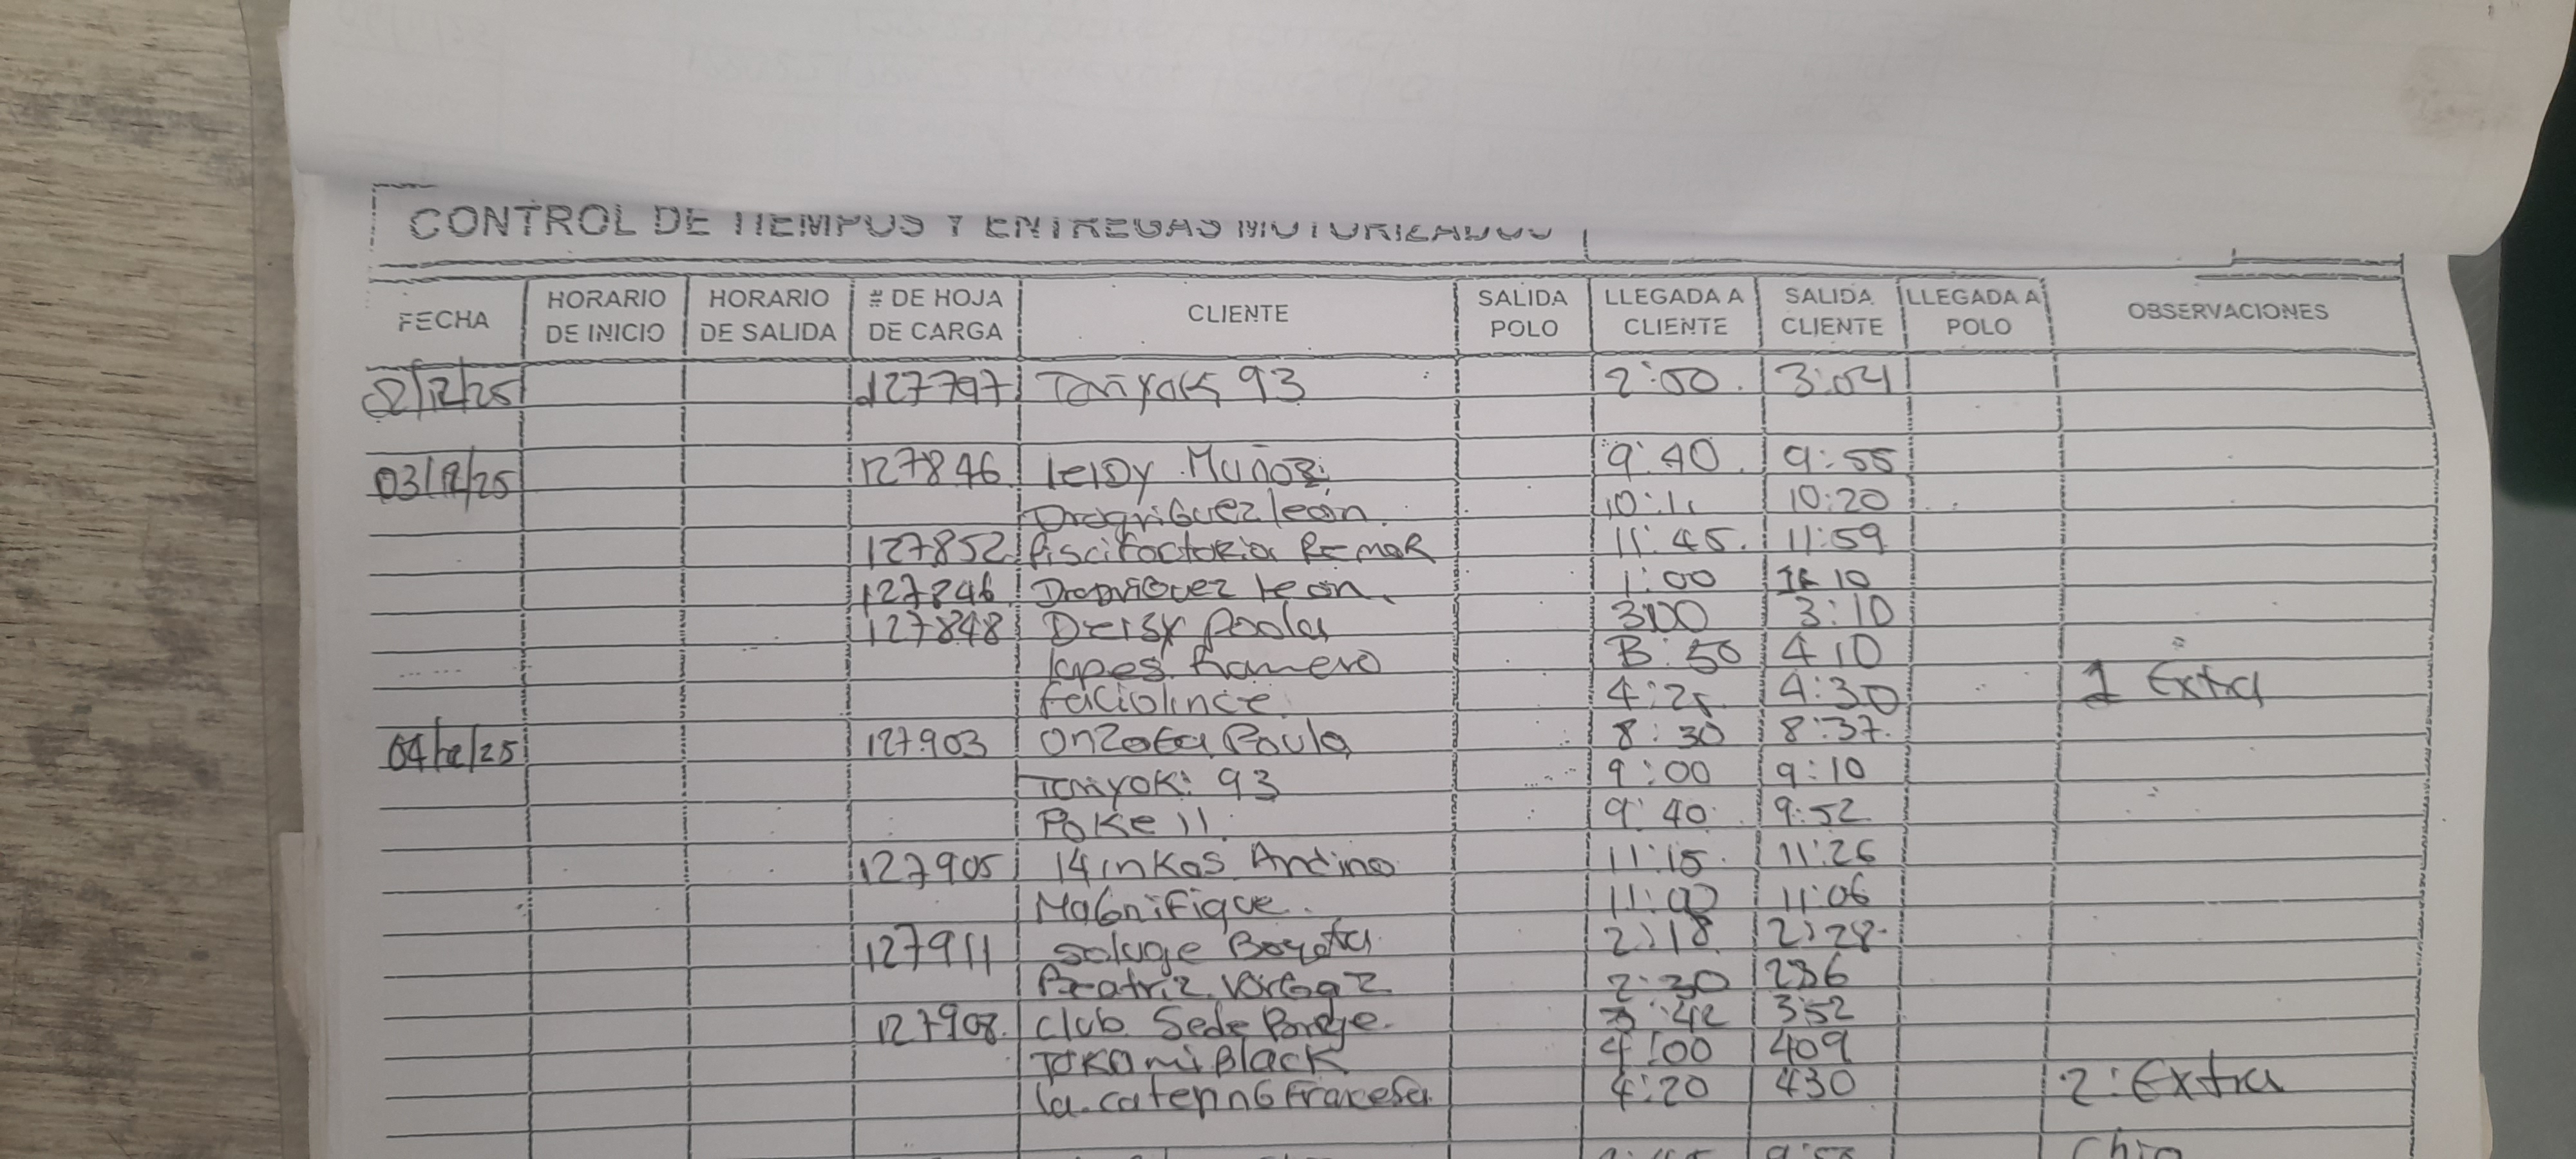 CONTROL DE TIEMPOS Y ENTREGAS MOTORIZADOS
FECHA HORARIO DE INICIO HORARIO DE SALIDA # DE HOJA DE CARGA CLIENTE SALIDA POLO LLEGADA A CLIENTE SALIDA CLIENTE LLEGADA A POLO OBSERVACIONES
02/12/25 127797 Tanyoki 93 2:50 3:04
03/12/25 127846 leidy Muñoz 9:40 9:55
Drodriguez león 10:11 10:20
127852 Piscifactoria Remar 11:45 11:59
127846 Drodriguez leon 1:00 10
127848 Deisy Paola 3:00 3:10
lopes Ramero 3:50 4 10
Faciolince 4:25 4:30 1 Extra
04/12/25 127903 Onzaga Paula 8:30 8:37
Tanyoki 93 9:00 9:10
Poke 11 9:40 9:52
127905 14 inkas Andino 11:15 11:26
MaGnifique 11:00 11:06
127911 Saluge Bogota 2:18 2:28
Beatriz VarGaz 2:30 236
127908 Club Sede 3:42 352
Tokami Black 4:00 409
la 4:20 430 2: Extra